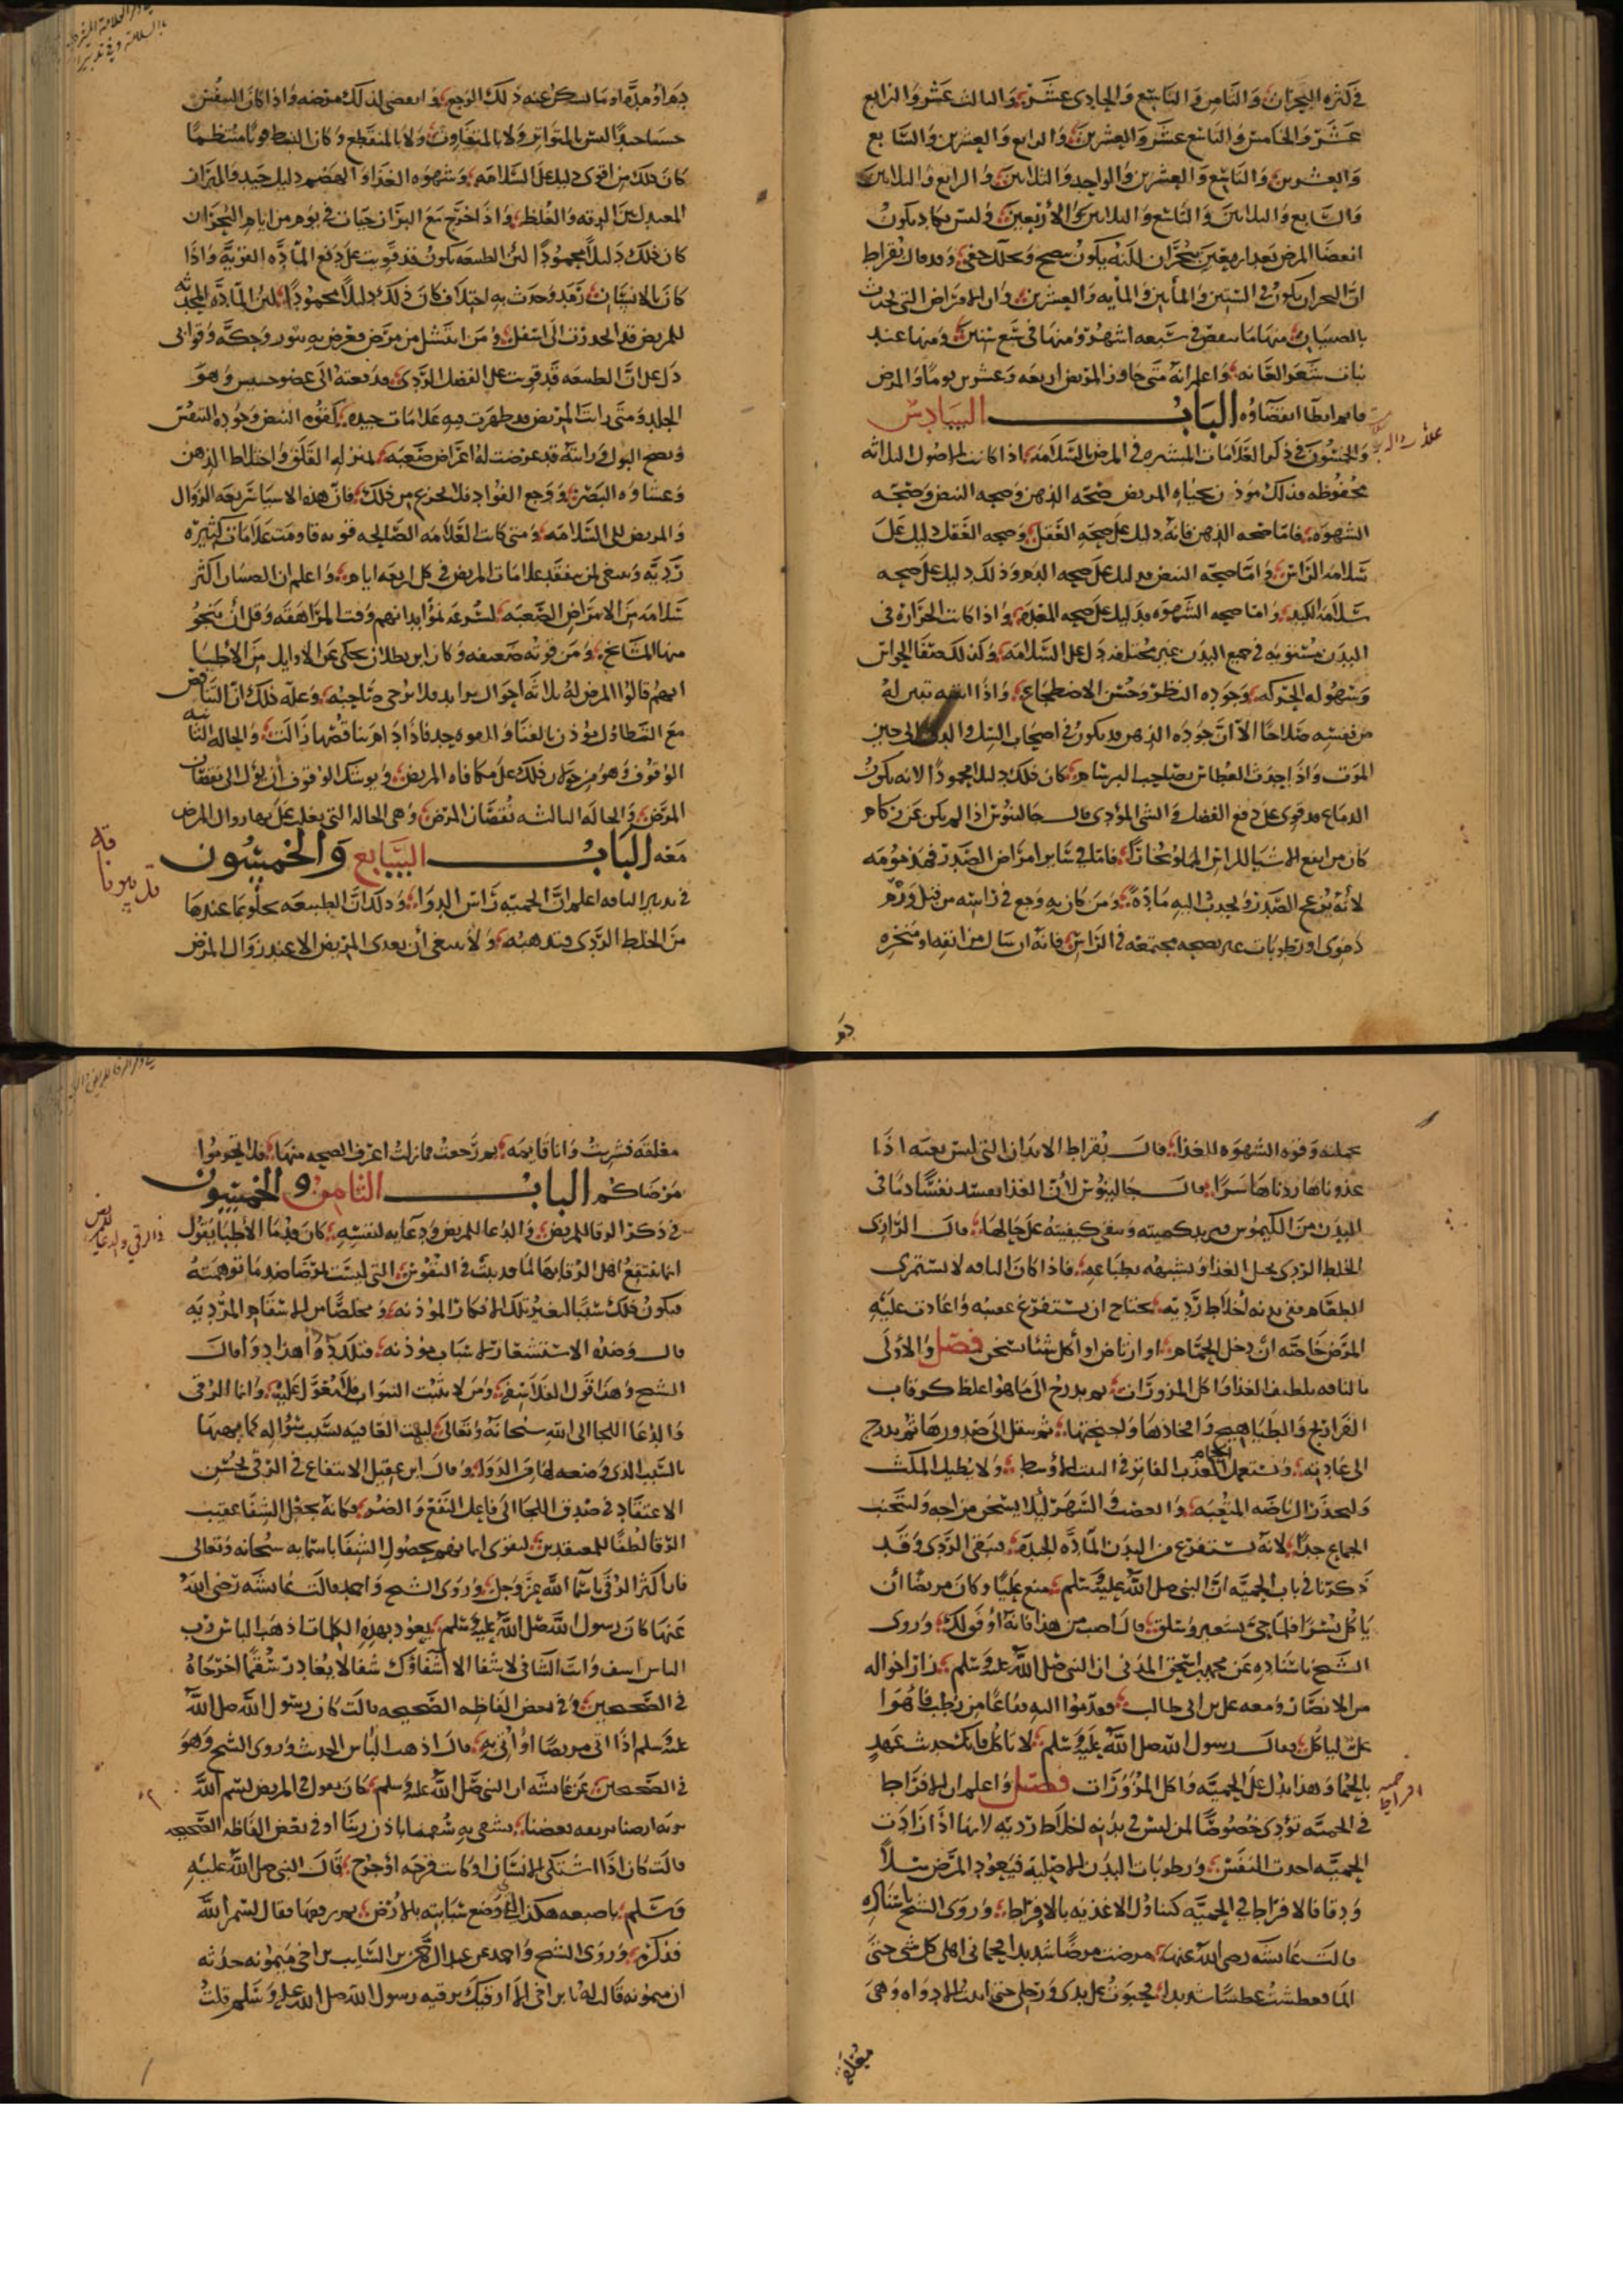 في كثرة البحران والثامن والتاسع والحادي عشر والثالث عشر والرابع
عشر والخامس والتاسع عشر والعشرين والرابع والعشرين والسابع
والعشرين والتاسع والعشرين والواحد والثلاثين والرابع والثلاثين
والسابع والثلاثين والتاسع والثلاثين والأربعين وليس يكاد يكون
انقضا المرض بعد اربعين ببحران لكنه يكون بنضج وتحلل خفي وقد قال بقراط
ان البحران يكون في الستين والمأتين والمأيه والعشرين وان الامراض التي تحدث
بالصبيان منها ما ينقضي في سبعه اشهر ومنها في سبع سنين ومنها عند
نبات شعر العانه واعلم انه متى جاوز المريض اربعه وعشرين يوما والمرض
قايم ابطا انقضاوه الباب السادس
والخمسون في ذكر العلامات المبشره في المرض بالسلامه اذا كانت الاصول الثلاثه
محفوظه فذلك موذن بحياه المريض صحه الذهن وصحه النبض وصحه
الشهوه فاما صحه الذهن فانه دليل على صحه العقل وصحه العقل دليل على
سلامه الراس واما صحه النبض فدليل على صحه الدم وذلك دليل على صحه
سلامه الكبد واما صحه الشهوه فدليل على صحه المعده واذا كانت الحراره في
البدن مستويه في جميع البدن غير مختلفه دل على السلامه وكذلك صفا الحواس
وسهوله الحركه وجوده النظر وحسن الاضطجاع واذا تبين له
من نفسه صلاحا الا ان جوده الذهن قد يكون في اصحاب السل الى حين
الموت واذا حدث العطاس بصاحب البرسام كان ذلك دليلا محمودا لانه يكون
الدماغ قد قوي على دفع الفضل والشي المؤذي قال جالينوس اذا لم يكن عن زكام
كان من انفع الاشيا للراس المملو بخارا فاما في ساير امراض الصدر فمذمومه
لانه يزعج الصدر ويجذب اليه مادة ومن كان به وجع في راسه من قبل ورم
دموي او رطوبات غير نضجه مجتمعه في الراس فانه ان سال من انفه او منخره
دم او مده او ما سكن عنه ذلك الوجع وانقضى لذلك مرضه واذا كان النفس
حسنا جيدا ليس بالمتواتر ولا بالمتفاوت ولا بالمنقطع وكان النبض قويا منتظما
كان ذلك من اقوى دليل على السلامه وشهوه الغذا والهضم دليل جيد والبراز
المعتدل بين الرقه والغلظ واذا خرج مع البراز حيات في يوم من ايام البحران
كان ذلك دليلا محمودا لان الطبيعه تكون قد قويت على دفع الماده القويه واذا
كان بالانسان رمد وحدث به اختلاف كان ذلك دليلا محمودا لان الماده المحدثه
للمرض قد انحدرت الى اسفل ومن انتشل من مرض فعرض به بثور وحكه وقوابي
دل على ان الطبيعه قد قويت على الفضل الردي ودفعته الى عضو خسيس وهو
الجلد ومتى رايت المريض قد ظهرت فيه علامات جيده كقوه النبض وجوده التنفس
ونضج البول ورايته قد عرضت له اعراض صعبه بمنزله القلق واختلاط الذهن
وغشاوه البصر ووجع الفواد فلا تجزع من ذلك فان هذه الاشيا سريعه الزوال
والمريض الى السلامه ومتى كانت العلامه الصالحه قويه قاومت علامات كثيره
رديه وينبغي لمن تفقد علامات المريض في كل اربعه ايام واعلم ان الصبيان اكثر
سلامه من الامراض الصعبه لسرعه نمو ابدانهم وقت المراهقه وقل أن ينجو
منها المشايخ ومن قوته ضعيفه وكان ابن بطلان يحكي عن الاوايل من الاطبا
انهم قالوا المرض له ثلاثه احوال تزايد فلا يرجى صاحبه وعله ذلك ان التناقص
مع التطاول موذن بالفنا والقوه جيد فاذا دام تناقصها زالت والحاله الثانيه
الوقوف وهو من مكافاه المريض ويوشك الوقوف أن يؤل الى نقصان
المرض والحاله الثالثه نقصان المرض وهي الحاله التي يغلب على زوال المرض
معه الباب السابع والخمسون
في تدبير الناقه اعلم ان الحميه راس الدوا وذلك أن الطبيعه تخلو بما عندها
من الخلط الردي فتذهبه ولا ينبغي أن يغذى المريض الا عند زوال المرض
تدبير ناقه
بجملته وقوه الشهوه للغذا قال بقراط الابدان التي ليس بنقيه اذا
غذوناها زدناها شرا قال جالينوس لأن الغذا يفسد بفساد ما في
البدن من الكيموس فيزيد كميته وتبقى كيفيته على حالها قال الرازي
الخلط الردي يحيل الغذا ويشبهه بطباعه فاذا كان الناقه لا يستمري
الطعام ففي بدنه اخلاط رديه يحتاج ان يستفرغ والا عادت عليه
المرض خاصه ان دخل الحمام او ارتاض او أكل شيئا سخن فصل والاولى
بالناقه تلطيف الغذا واكل المزورات ثم يدرج الى ما هو اغلظ كرقاب
الفراريج والطياهيج وافخاذها واجنحتها ثم ينتقل الى صدورها ثم يدرج
الى عادته ويستعمل الحمام العذب الفاتر في البيت الأوسط ولا يطيل المكث
وليحذر الرياضه المتعبه والغضب والسهر ليلا يسخن مزاجه وليتجنب
الجماع جدا لانه يستفرغ من البدن المادة الجيده فيبقى الردي وقد
ذكرنا في باب الحميه ان النبي صلى الله عليه وسلم منع عليا وكان مريضا أن
يأكل بسرا فلما جي بشعير وسلق قال اصب من هذا فانه اوفق لك وروى
الشيخ باسناده عن محمد بن اسحق المدني ان النبي صلى الله عليه وسلم زار اخواله
من الانصار ومعه علي بن ابي طالب فقدموا اليه قناعا من رطب فاهوا
علي لياكل فقال رسول الله صلى الله عليه وسلم لا تاكل فانك حديث عهد
بالحما وهذا يدل على الحميه واكل المزورات فصل واعلم ان الافراط
في الحميه تؤذي خصوصا لمن ليس في بدنه اخلاط رديه لانها اذا زادت
الحميه اخذت النفس ورطوبات البدن الاصليه فيعود المرض سلا
ودقا فالافراط في الحميه كتناول الاغذيه بالافراط وروى الشيخ باسناده
قالت عائشه رضي الله عنها مرضت مرضا شديدا فحماني اهلي كل شي حتى
الما فعطشت عطشا شديدا فحبوت على يدي ورجلي حتى اتيت الادواه وهي
معلقه
معلقه فشربت وانا قايمه ثم رجعت فما زلت اعرف الصحه منها فلا تحرموا
مرضاكم الباب الثامن والخمسون
في ذكر الرقا للمريض والدعا للمريض ودعايه لنفسه كان قدما الأطبا يقول
انما ينتفع اهل الرقا بها لما قد يبث في النفوس التي ليست مرتاضه ما توهمته
فيكون ذلك سببا لتغير تلك الافكار الموذنه ومخلصا من الاسقام المرديه
قال وضده الاستشعار لاسباب موذنه فتلك دآ وهذا دوا قال
الشيخ وهذا قول الفلاسفه ومن لا يثبت النبوات فلا يعول عليه وانما الرقى
والدعا اللجا الى الله سبحانه وتعالى ليهب العافيه بسبب سؤاله كما يهبها
بالسبب الذي وضعه لها من الدوا وقال ابن عقيل الانتفاع في الرقى بحسن
الاعتقاد في صدق اللجا الى فاعل النفع والضر فكانه يجعل الشفا عقيب
الرقا لطفا للمعتقدين ليقوى ايمانهم بحصول الشفا باسمايه سبحانه وتعالى
فان أكثر الرقى باسما الله عز وجل وروى الشيخ واحمد قالت عائشه رضي الله
عنها كان رسول الله صلى الله عليه وسلم يعوذ بهذه الكلمات اذهب الباس رب
الناس اشف وانت الشافي لا شفا الا شفاؤك شفا لا يغادر سقما اخرجاه
في الصحيحين وفي بعض الفاظه الصحيحه قالت كان رسول الله صلى الله
عليه وسلم اذا اتى مريضا او أتي به قال اذهب الباس الحديث وروى الشيخ وهو
في الصحيحين عن عائشه ان النبي صلى الله عليه وسلم كان يقول في المريض بسم الله
تربه ارضنا بريقه بعضنا يشفى به سقيمنا باذن ربنا او في بعض الفاظه الصحيحه
قالت كان اذا اشتكى الانسان او كانت قرحه او جرح قال النبي صلى الله عليه
وسلم باصبعه هكذا ووضع سبابته بالارض ثم رفعها فقال بسم الله
فذكره وروى الشيخ واحمد عن عبد الرحمن بن السايب بن اخي ميمونه حدثه
ان ميمونه قالت له يا بن اخي الا ارقيك برقيه رسول الله صلى الله عليه وسلم قلت